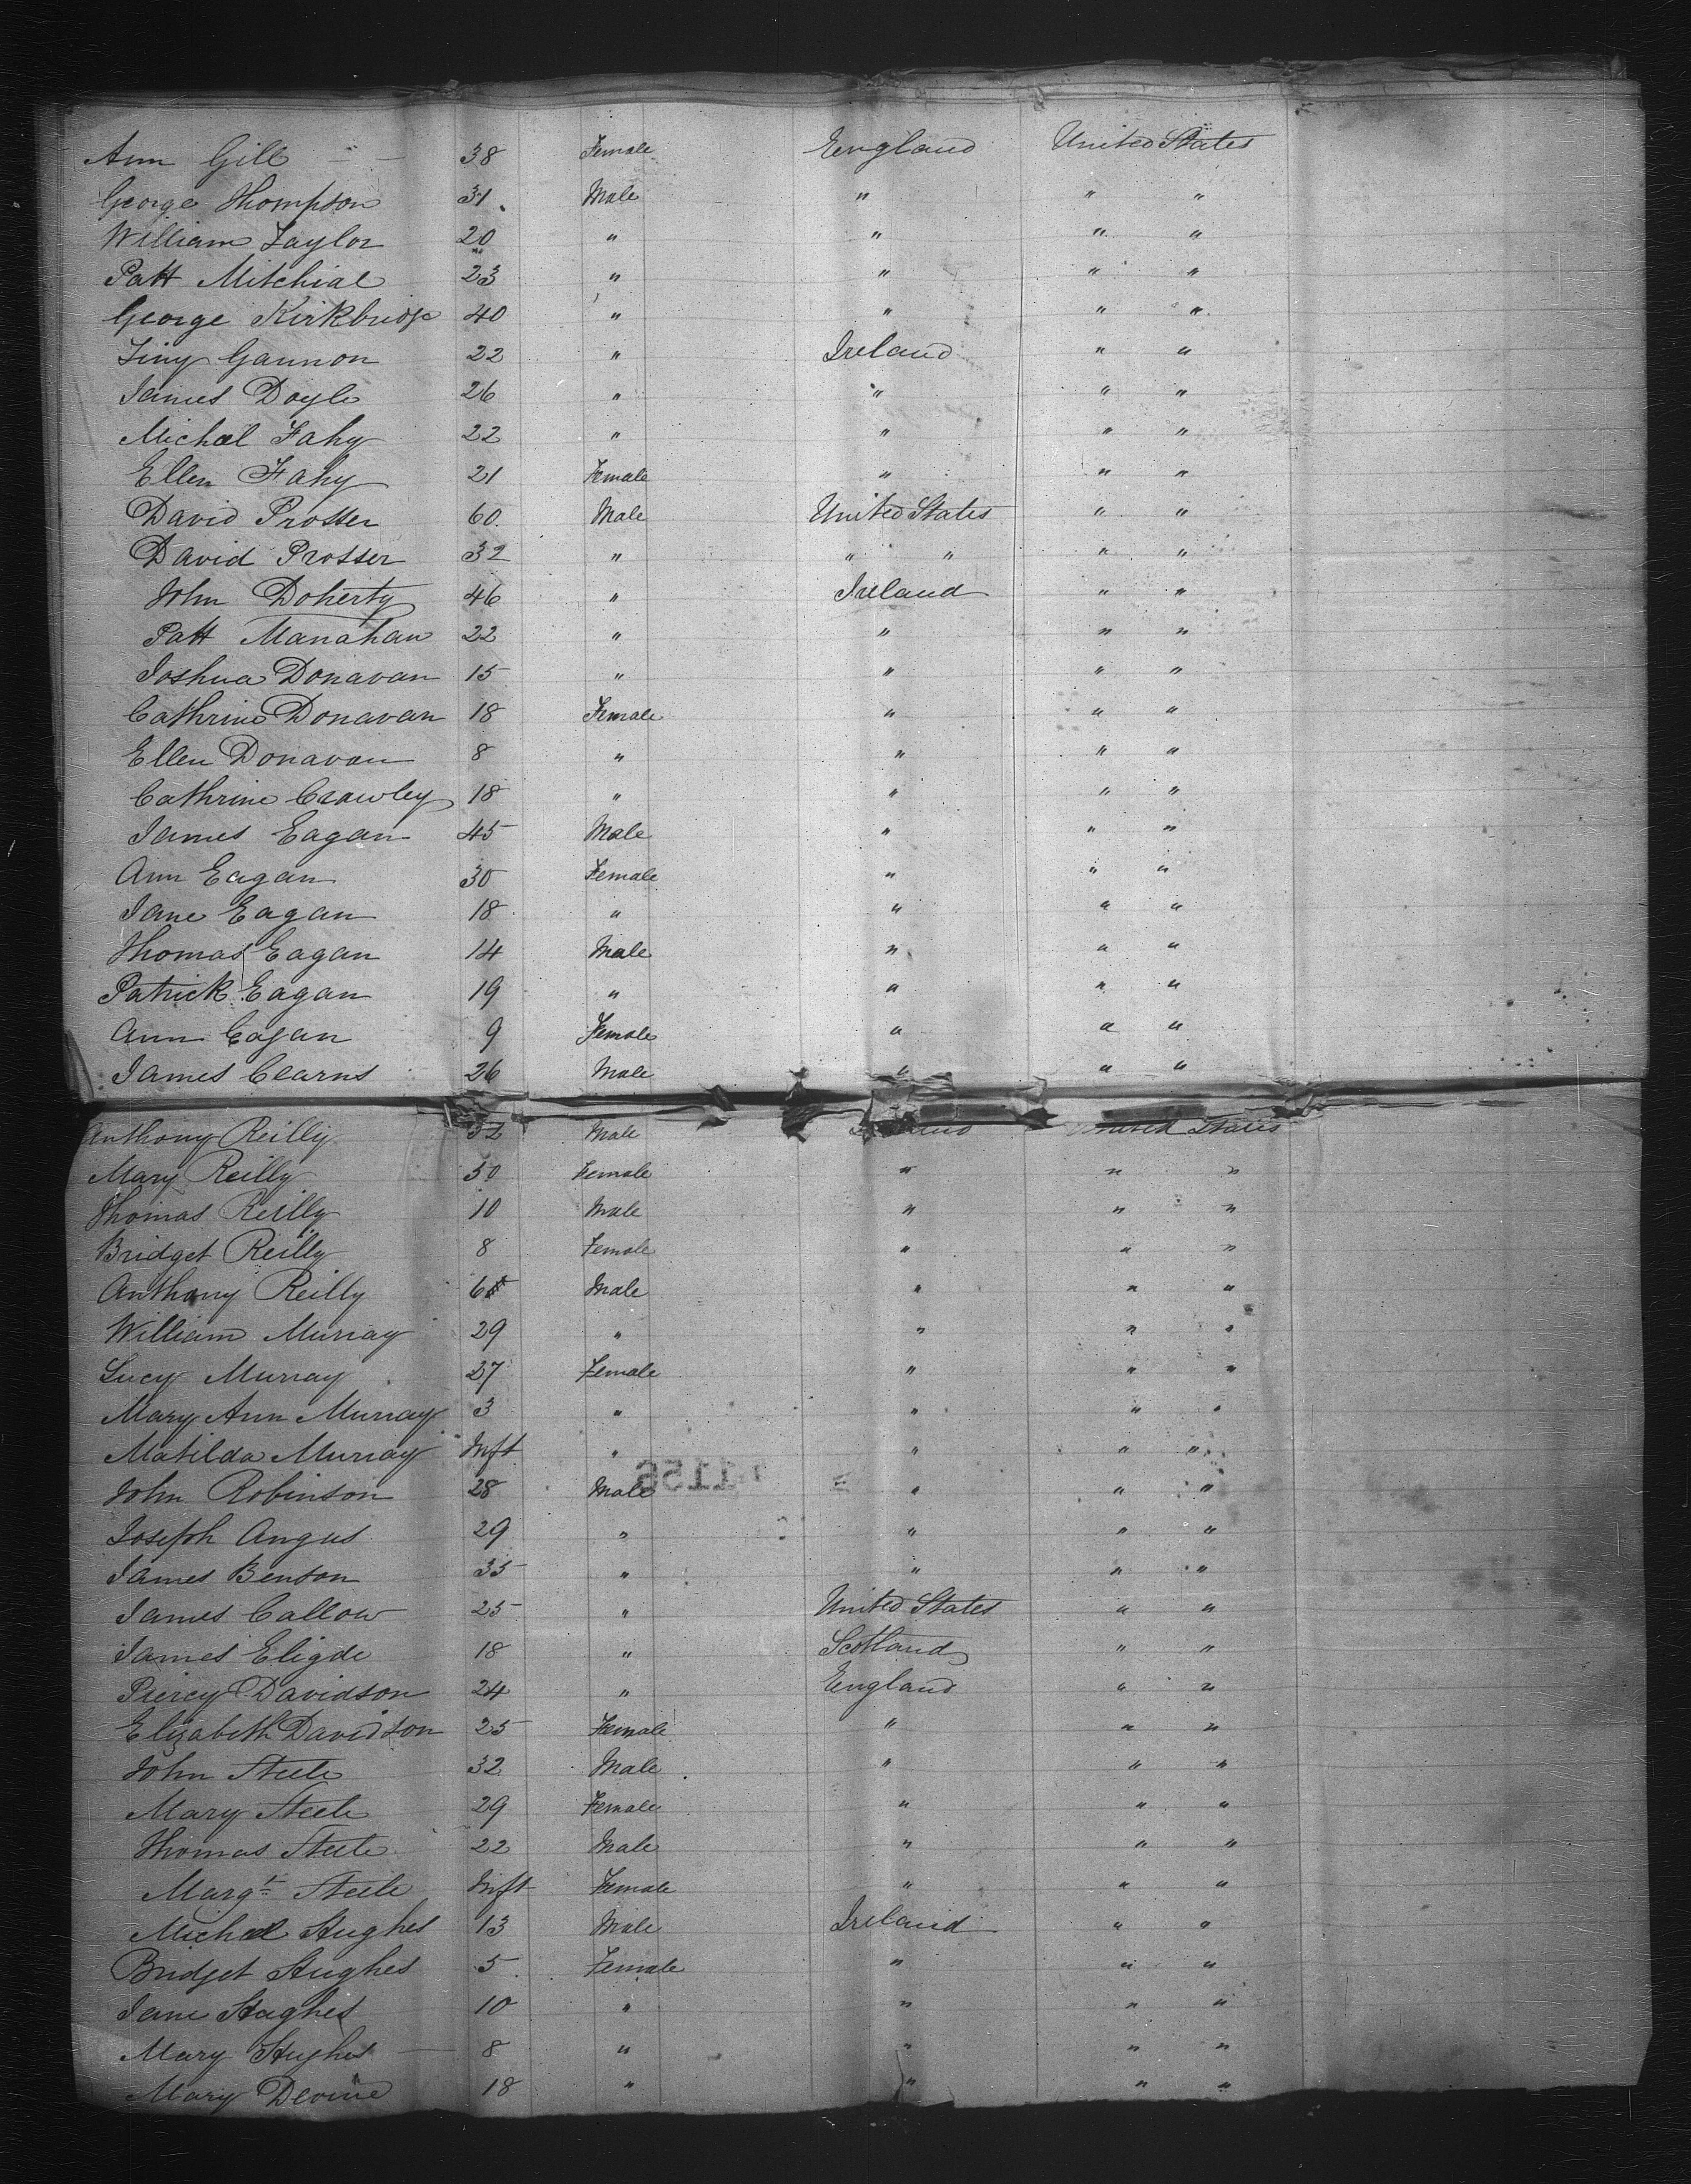 Ann Gill 38 Female England United States
George Thompson 31 Male " " "
William Taylor 20 " " " "
Patt Mitchial 23 " " " "
George Kirkbridge 40 " " " "
Gannon 22 " Ireland " "
James Doyle 26 " " " "
Michael Fahy 22 " " " "
Ellen Fahy 21 Female " " "
David Prosser 60 Male United States " "
David Prosser 32 " " " " "
John Doherty 46 " Ireland " "
Patt Manahan 22 " " " "
Joshua Donavan 15 " " " "
Cathrine Donavan 18 Female " " "
Ellen Donavan 8 " " " "
Cathrine Crawley 18 " " " "
James Eagan 45 Male " " "
Ann Eagan 30 Female " " "
Jane Eagan 18 " " " "
Thomas Eagan 14 Male " " "
Patrick Eagan 19 " " " "
Ann Eagan 9 Female " " "
James Clearns 26 Male " " "
Anthony Reilly 32 Male United States
Mary Reilly 30 Female " " "
Thomas Reilly 10 Male " " "
Bridget Reilly 8 Female " " "
Anthony Reilly 6 Male " " "
William Murray 29 " " " "
Lucy Murray 27 Female " " "
Mary Ann Murray 3 " " " "
Matilda Murray Inft " " " "
John Robinson 28 Male " " "
Joseph Angus 29 " " " "
James Benson 35 " " " "
James Callow 25 " United States " "
James Eligde 18 " Scotland " "
Piercy Davidson 24 " England " "
Elizabeth Davidson 25 Female " " "
John Steele 32 Male " " "
Mary Steele 29 Female " " "
Thomas Steele 22 Male " " "
Margt Steele Inft Female " " "
Michael Hughes 13 Male Ireland " "
Bridget Hughes 5 Female " " "
Jane Hughes 10 " " " "
Mary Hughes 8 " " " "
Mary Devine 18 " " " "